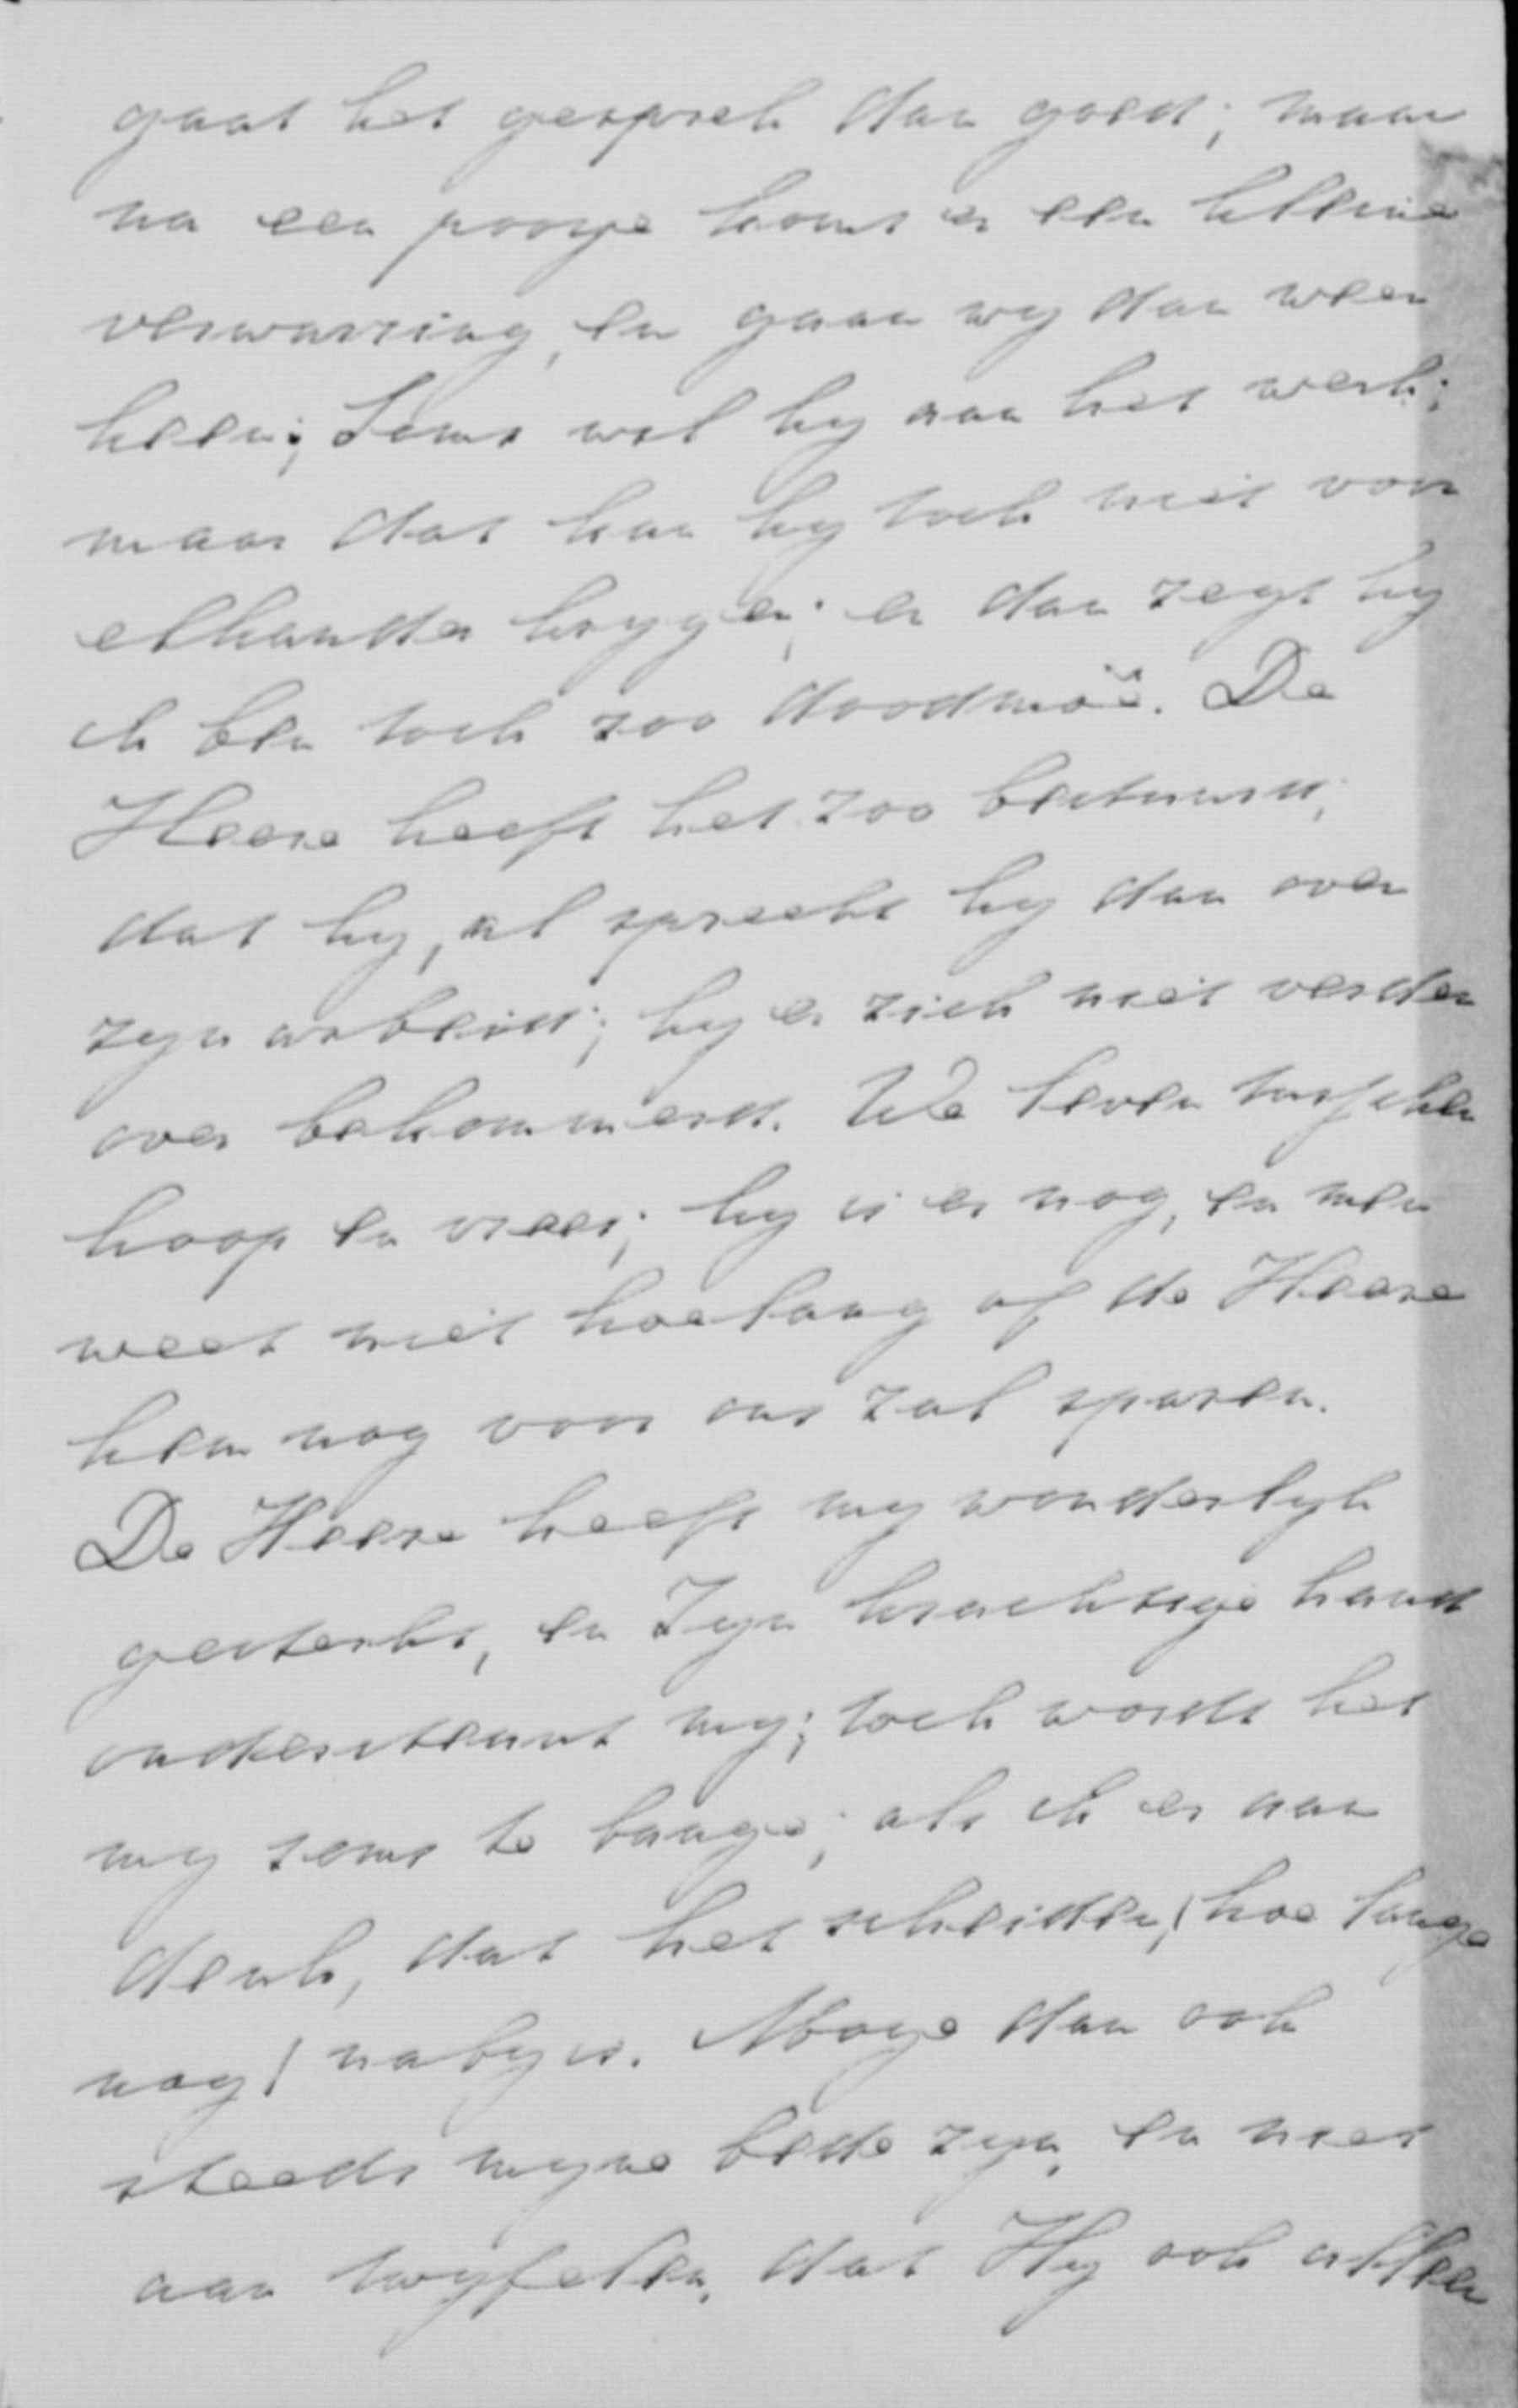 gaat het gesprek dan goed; maar
na een poosje komt er een kleine
verwarring, en gaan wy dan weer
heen; Soms wil hy aan het werk;
maar dat kan hy toch niet voor
elkander krygen; en dan zegt hy
ik ben toch zoo doodmoê. De
Heere heeft het zoo bestuurd,
dat hy, al spreekt hy dan over
zyn arbeid; hy er zich niet verder
over bekommerd. We leven tusschen
hoop en vrees; hy is er nog, en men
weet niet hoelang of de Heere
hem nog voor ons zal sparen.
De Heere heeft my wonderlyk
gesterkt, en Zyn krachtige hand
ondersteunt my; toch wordt het
my soms te bange; als ik er aan
denk, dat het scheiden, (hoe lange
nog) naby is. Moge dan ook
steeds myne bede zyn, en niet
aan twyfelen, dat Hy ook alleen